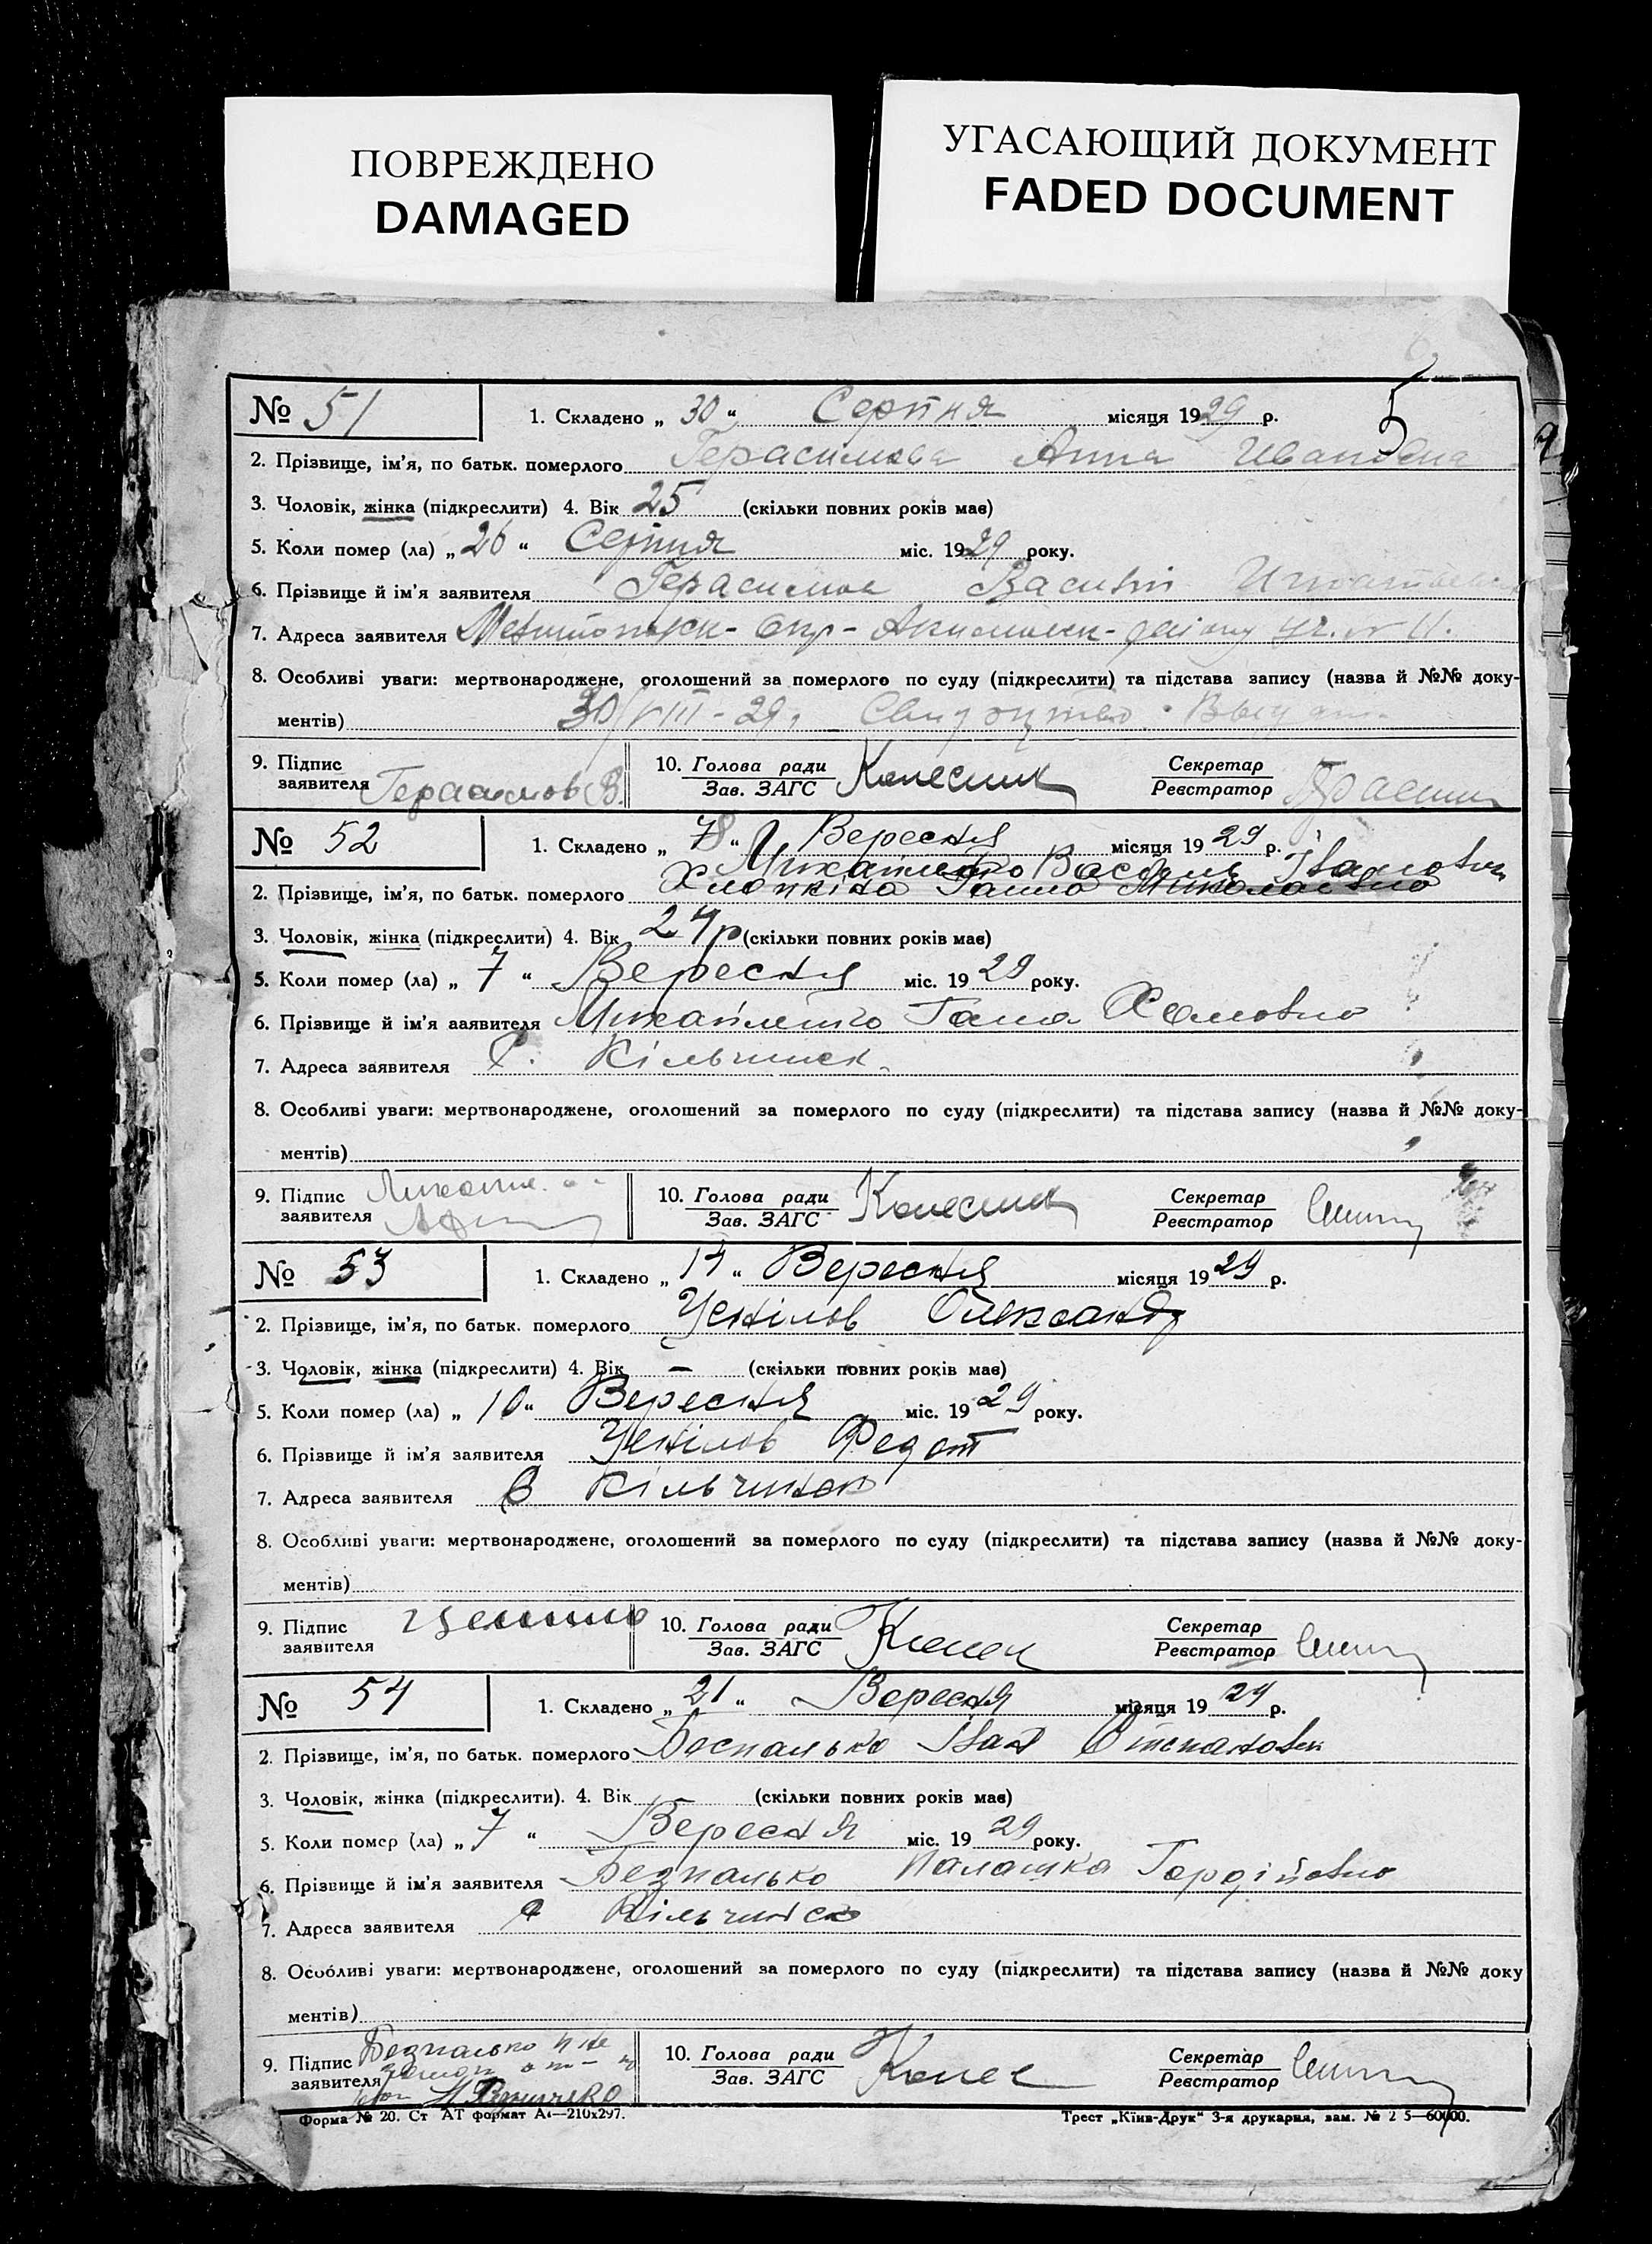 ПОВРЕЖДЕНО
DAMAGED
УГАСАЮЩИЙ ДОКУМЕНТ
FADED DOCUMENT
5
№ 51 1. Складено „ 30 “ Серпня місяця 1929 р.
2. Прізвище, ім'я, по батьк. померлого Герасимова Анна Ивановна
3. Чоловік, жінка (підкреслити) 4. Вік 25 (скільки повних років має)
5. Коли помер (ла) „ 26 “ Серпня міс. 1929 року.
6. Прізвище й ім'я заявителя Герасимов Василий
7. Адреса заявителя
8. Особливі уваги: мертвонароджене, оголошений за померлого по суду (підкреслити) та підстава запису (назва й №№ доку-
ментів) 30/VIII - 29
9. Підпис заявителя Герасимов В. 10. Голова ради Зав. ЗАГС Колесник Секретар Реєстратор
№ 52 1. Складено „ “ Вересня місяця 1929 р.
Михайленко Василь Іванович
2. Прізвище, ім'я, по батьк. померлого Ганна Миколаївна
3. Чоловік, жінка (підкреслити) 4. Вік 24р (скільки повних років має)
5. Коли помер (ла) „ 7 “ Вересня міс. 1929 року.
6. Прізвище й ім'я заявителя Михайленко Ганна
7. Адреса заявителя С. Кільчинск
8. Особливі уваги: мертвонароджене, оголошений за померлого по суду (підкреслити) та підстава запису (назва й №№ доку-
ментів)
9. Підпис заявителя 10. Голова ради Зав. ЗАГС Колесник Секретар Реєстратор
№ 53 1. Складено „ 14 “ Вересня місяця 1929 р.
2. Прізвище, ім'я, по батьк. померлого Олександр
3. Чоловік, жінка (підкреслити) 4. Вік — (скільки повних років має)
5. Коли помер (ла) „ 10 “ Вересня міс. 1929 року.
6. Прізвище й ім'я заявителя Федот
7. Адреса заявителя С Кільчинск
8. Особливі уваги: мертвонароджене, оголошений за померлого по суду (підкреслити) та підстава запису (назва й №№ доку-
ментів)
9. Підпис заявителя 10. Голова ради Зав. ЗАГС Секретар Реєстратор
№ 54 1. Складено „ 21 “ Вересня місяця 1929 р.
2. Прізвище, ім'я, по батьк. померлого Беспалько Іван Степанович
3. Чоловік, жінка (підкреслити). 4. Вік (скільки повних років має)
5. Коли помер (ла) „ 7 “ Вересня міс. 1929 року.
6. Прізвище й ім'я заявителя Безпалько Палашка Гордіївна
7. Адреса заявителя с Кільчинск
8. Особливі уваги: мертвонароджене, оголошений за померлого по суду (підкреслити) та підстава запису (назва й №№ доку
ментів)
9. Підпис заявителя Безпалько 10. Голова ради Зав. ЗАГС Секретар Реєстратор
Форма № 20. Ст АТ формат А4—210х297. Трест „Київ-Друк“ 3-я друкарня, зам. №